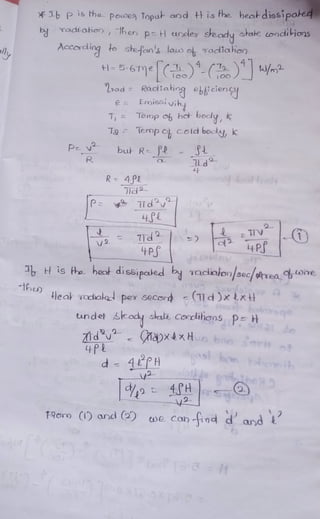 * If P is the power Input and H is the heat dissipated
by radiation, then P = H under steady state conditions
According to stefan's law of radiation
H = 5.67ηe [(T₁/100)⁴ - (T₂/100)⁴] W/m²
ηrad = Radiating efficiency
e = Emissivity
T₁ = Temp of hot body, K
T₂ = Temp of cold body, K
P = V²/R but R = ρl/a = ρl/(πd²/4)
R = 4ρl/πd²
P = πd²V²/4ρl
l/V² = πd²/4Pρ => l/d² = πV²/4Pρ - ①
If H is the heat dissipated by radiation/sec/area of wire
then
Heat radiated per second = (πd) x l x H
under steady state conditions P = H
πd²V²/4ρl = (πd) x l x H
d = 4l²ρH/V²
d/l² = 4ρH/V² - ②
From (1) and (2) we can find 'd' and 'l'